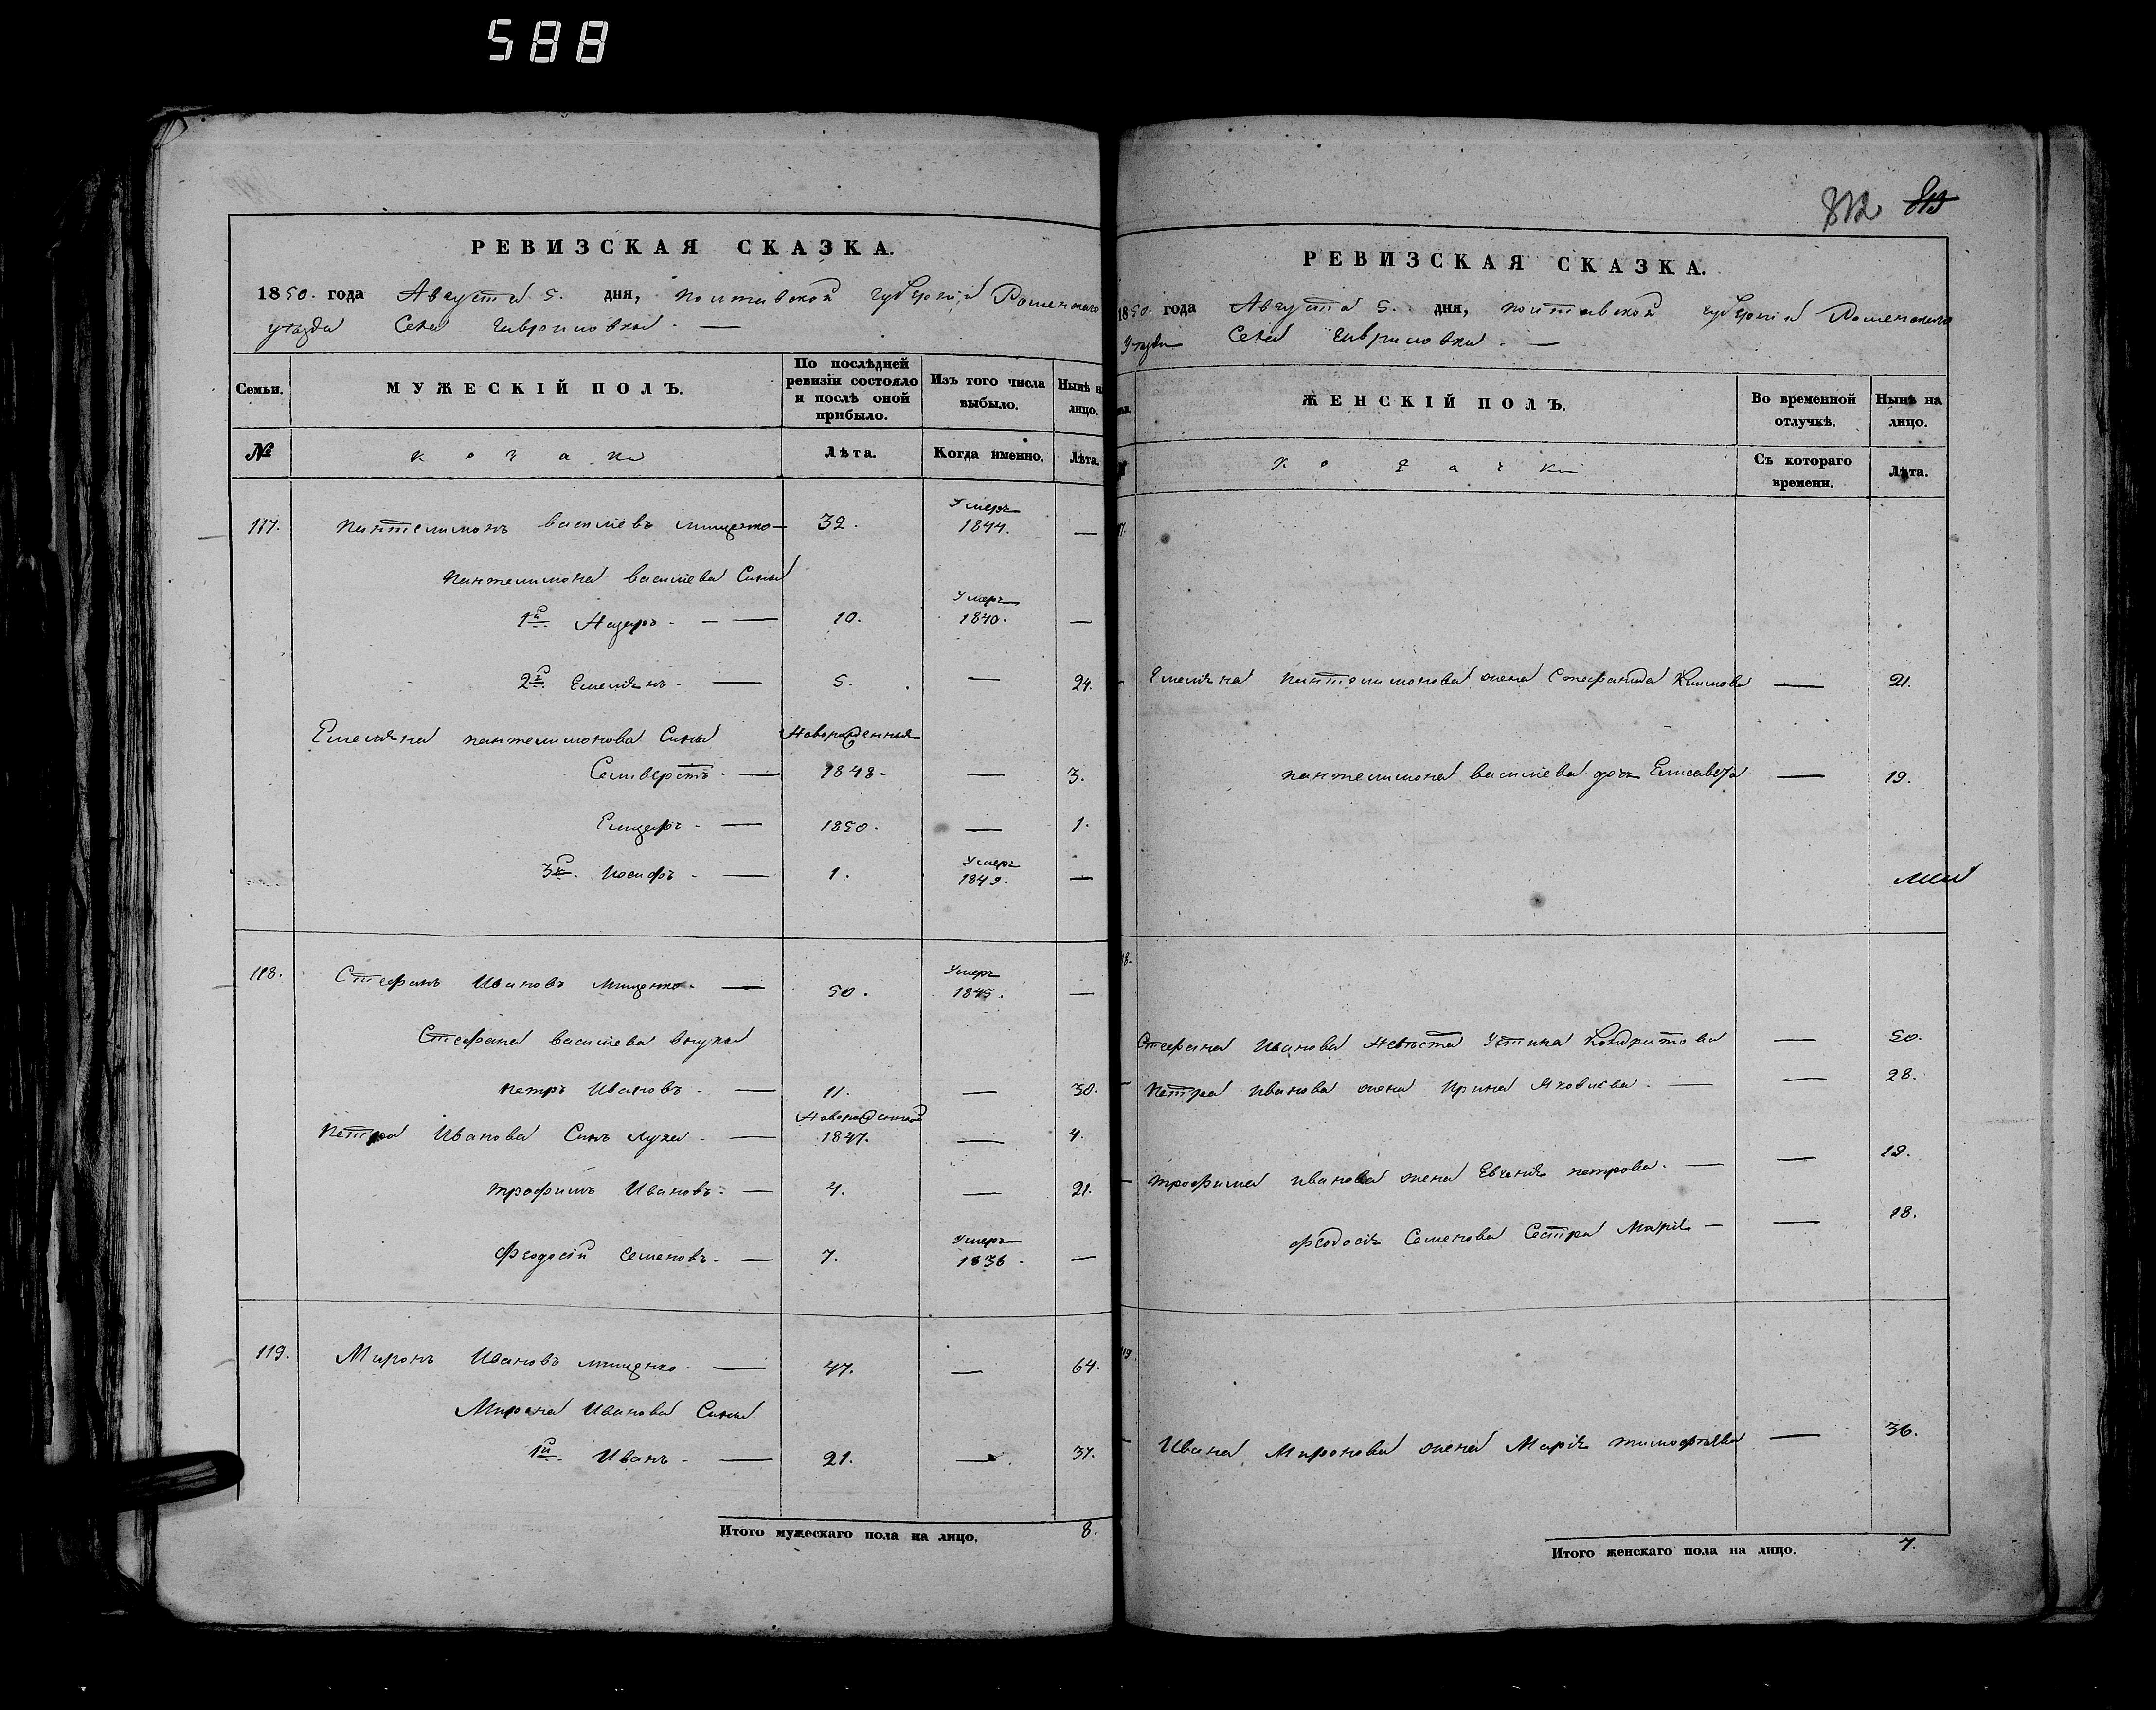 588
РЕВИЗСКАЯ СКАЗКА.
1850. года Августа 5. дня, Полтавской губерніи Роменскаго
уѣзда Села Гавриловки. —
Семьи. МУЖЕСКІЙ ПОЛЪ. По послѣдней ревизіи состояло и послѣ оной прибыло. Изъ того числа выбыло. Нынѣ на лицо.
№ козаки Лѣта. Когда именно. Лѣта.
117. Пантелимонъ Васильевъ Мищенко — 32. Умеръ 1844. —
Пантелимона Васильева Сыны
1й. Назаръ. — 10. Умеръ 1840. —
2й. Емельянъ. — 5. — 24.
Емельяна Пантелимонова Сыны Новорожденныя
Селиверстъ. — 1848. — 3.
Елизаръ. — 1850. — 1.
3й. Иосифъ. — 1. Умеръ 1849. —
118. Стефанъ Ивановъ Мищенко. — 50. Умеръ 1845. —
Стефана Васильева внуки
Петръ Ивановъ. — 11. — 30.
Петра Иванова Сынъ Лука. — Новорожденный 1847. — 4.
Трофимъ Ивановъ. — 4. — 21.
Феодосій Семеновъ. — 7. Умеръ 1836. —
119. Миронъ Ивановъ Мищенко. — 47. — 64.
Мирона Иванова Сыны
1й. Иванъ. — 21. — 37.
Итого мужескаго пола на лицо. 8.
812 813
РЕВИЗСКАЯ СКАЗКА.
1850. года Августа 5. дня, Полтавской губерніи Роменскаго
Уѣзда Села Гавриловки. —
ЖЕНСКІЙ ПОЛЪ. Во временной отлучкѣ. Нынѣ на лицо.
козачки Съ котораго времени. Лѣта.
Емельяна Пантелимонова жена Стефанида Климова — 21.
Пантелимона Васильева дочь Елисавета — 19.
Стефана Иванова Невѣста Устина Кондратова — 50.
Петра Иванова жена Ирина Яковлева. — — 28.
Трофима Иванова жена Евгенія Петрова. — — 19.
Феодосія Семенова Сестра Марія — — 18.
119.
Ивана Миронова жена Марія Тимофѣева — 36.
Итого женскаго пола на лицо. 7.